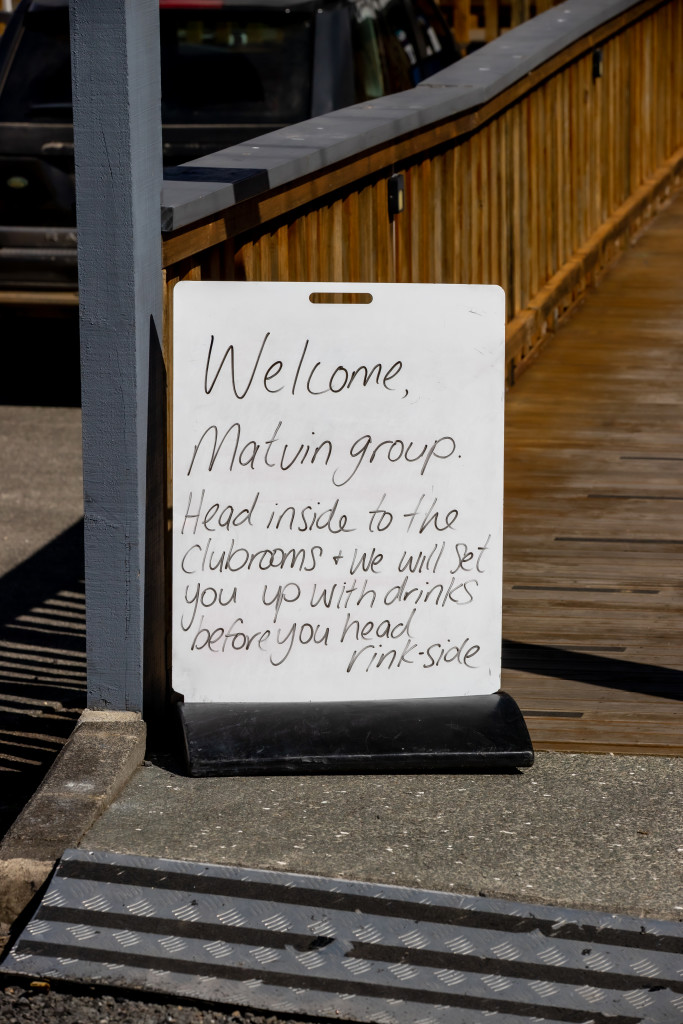 Welcome,
Matvin group.
Head inside to the
clubrooms + we will set
you up with drinks
before you head
rink-side